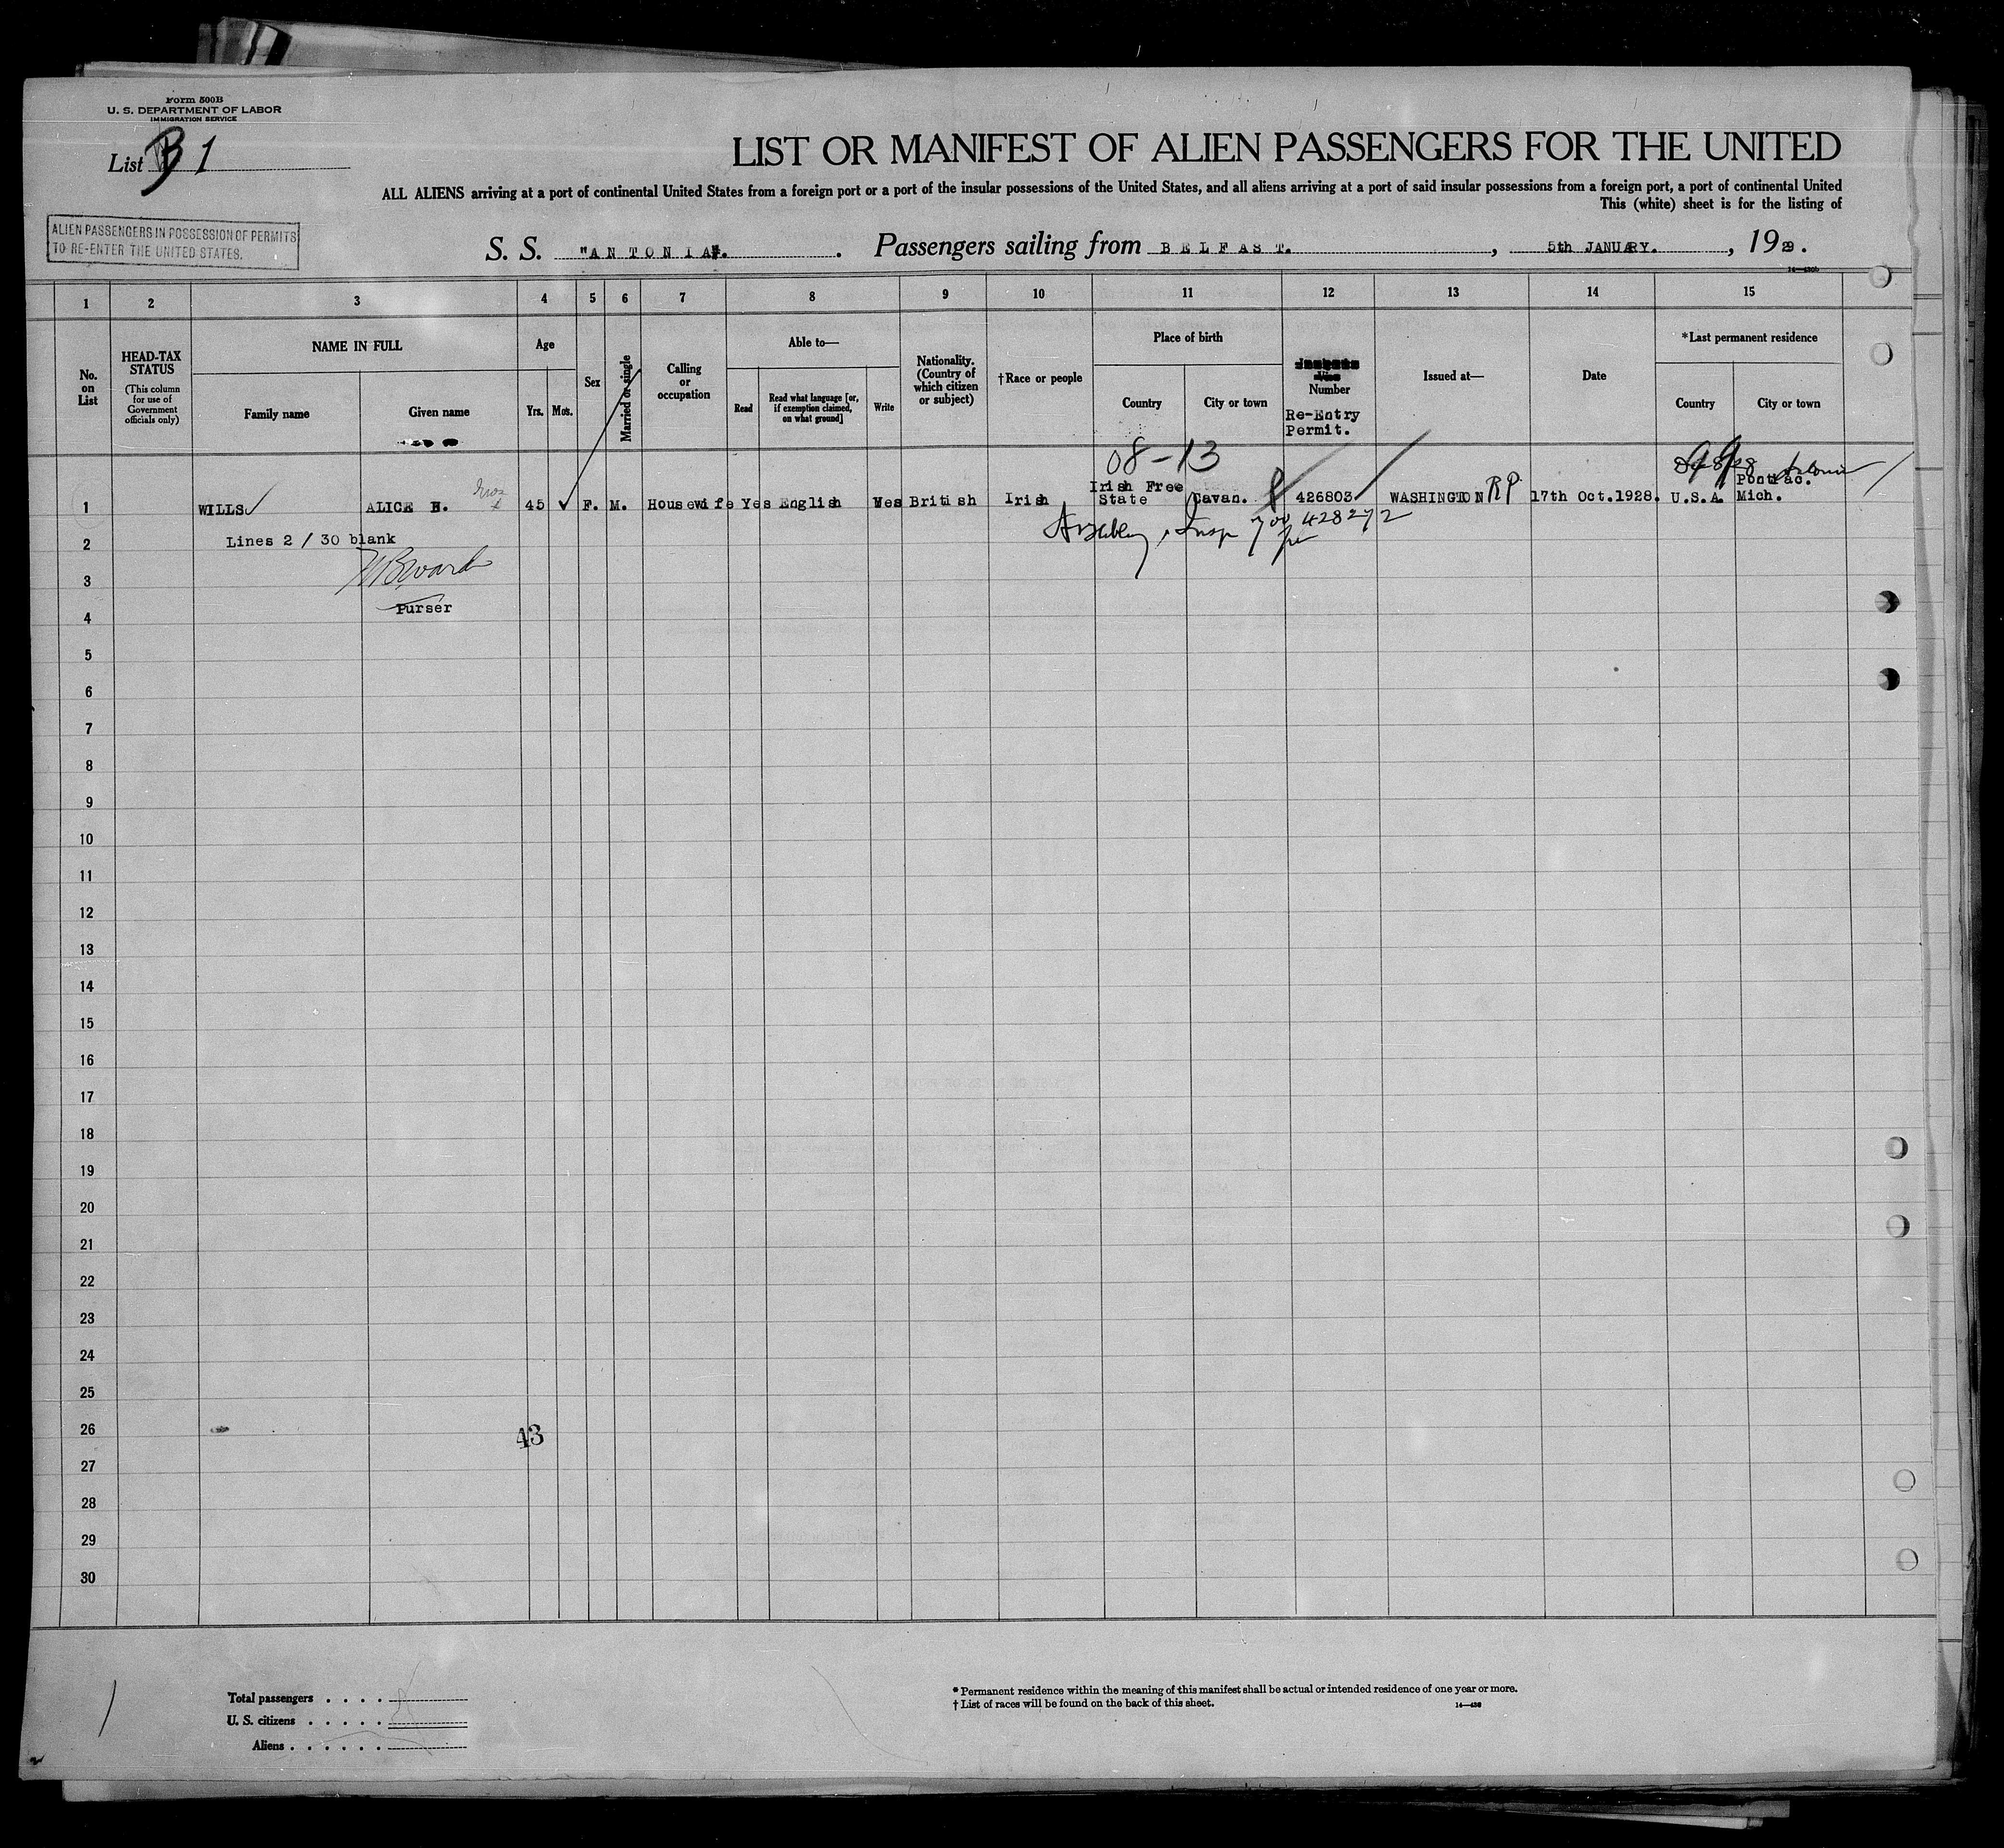 Form 500B
U. S. DEPARTMENT OF LABOR
IMMIGRATION SERVICE
List B 1
LIST OR MANIFEST OF ALIEN PASSENGERS FOR THE UNITED
ALL ALIENS arriving at a port of continental United States from a foreign port or a port of the insular possessions of the United States, and all aliens arriving at a port of said insular possessions from a foreign port, a port of continental United
This (white) sheet is for the listing of
ALIEN PASSENGERS IN POSSESSION OF PERMITS
TO RE-ENTER THE UNITED STATES.
S. S. "ANTONIA". Passengers sailing from BELFAST. , 5th JANUARY. , 1929.
1 2 3 4 5 6 7 8 9 10 11 12 13 14 15
No. on List
HEAD-TAX STATUS
(This column for use of Government officials only)
NAME IN FULL
Family name
Given name
Age
Yrs. Mos.
Sex
Married or single
Calling or occupation
Able to—
Read
Read what language [or, if exemption claimed, on what ground]
Write
Nationality. (Country of which citizen or subject)
†Race or people
Place of birth
Country
City or town
Number
Re-Entry Permit.
Issued at—
Date
*Last permanent residence
Country
City or town
08-13
1 WILLS ALICE E. 45 F. M. Housewife Yes English Yes British Irish Irish Free State Cavan. 426803 WASHINGTON RP 17th Oct.1928. U.S.A. Pontiac. Mich.
Insp 428272
2 Lines 2 / 30 blank
3
4 Purser
5
6
7
8
9
10
11
12
13
14
15
16
17
18
19
20
21
22
23
24
25
26 43
27
28
29
30
Total passengers . . . .
U. S. citizens . . . . .
Aliens . . . . . .
* Permanent residence within the meaning of this manifest shall be actual or intended residence of one year or more.
† List of races will be found on the back of this sheet.